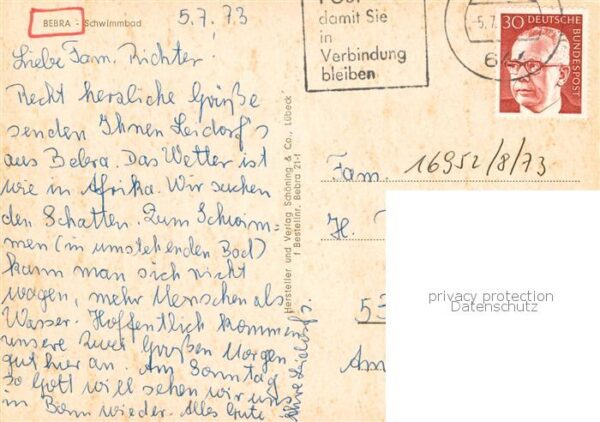 BEBRA - Schwimmbad
5.7.73
Liebe Fam. Richter!
Recht herzliche Grüße
senden Ihnen Leidorf's
aus Bebra. Das Wetter ist
wie in Afrika. Wir suchen
den Schatten. Zum Schwim-
men (in umstehenden Bad)
kann man sich nicht
wagen, mehr Menschen als
Wasser. Hoffentlich kommen
unsere zwei Großen Morgen
gut hier an. Am Sonntag
so Gott will sehen wir uns
in Bonn wieder. Alles Gute
Ihre Leidorf's.
Hersteller und Verlag Schöning & Co., Lübeck
Bestellnr. Bebra 21-1
damit Sie
in
Verbindung
bleiben
-5.7.
30 DEUTSCHE
BUNDESPOST
16952/8/73
Fam.
H.
53
Am
privacy protection
Datenschutz